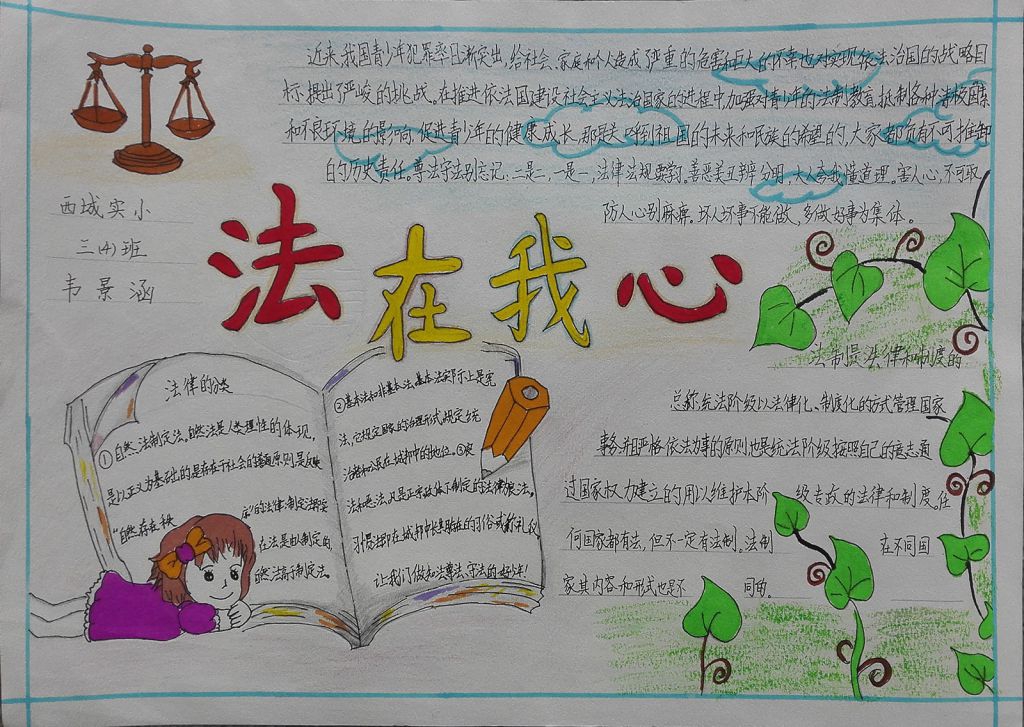 近来,我国青少年犯罪率日渐突出,给社会、家庭和个人造成严重的危害和巨大的不幸也对实现依法治国的战略目
标提出严峻的挑战。在推进依法国建设社会主义法治国家的进程中,加强对青少年的法制教育,抵制各种消极因素
和不良环境的影响,促进青少年的健康成长,那是关呼到祖国的未来和民族的希望的,大家都负有不可推卸
的历史责任。尊法守法别忘记;二是二,一是一,法律法规要学习。善恶美丑辨分明,大人夸我懂道理。害人心,不可取,
防人心别麻痹。坏人坏事不能做,多做好事为集体。
西城实小
三(4)班
韦景涵
法在我心
法律的分类
①自然法制定法。自然法是人类理性的体现,
是以正义为基础的是存在于社会的普遍原则,是反映
"自然存在秩
序"的法律,制定法
在法是由人制定的,
自然法高于制定法。
②基本法和非基本法,基本法实际上是宪
法,它规定国家的治理形式,规定统
治者和人民在城邦中的地位。③良
法和恶法,只是正宗政体下制定的法律
习惯法即在城邦中长期存在的习俗或称礼仪
让我们做知法尊法、守法的好少年!
法制是法律和制度的
总称统法阶级以法律化、制度化的方式管理国家
事务并且严格依法办事的原则也是统法阶级按照自己的意志通
过国家权力建立的用以维护本阶级专政的法律和制度。任
何国家都有法,但不一定有法制。法制在不同国
家其内容和形式也是不同的。